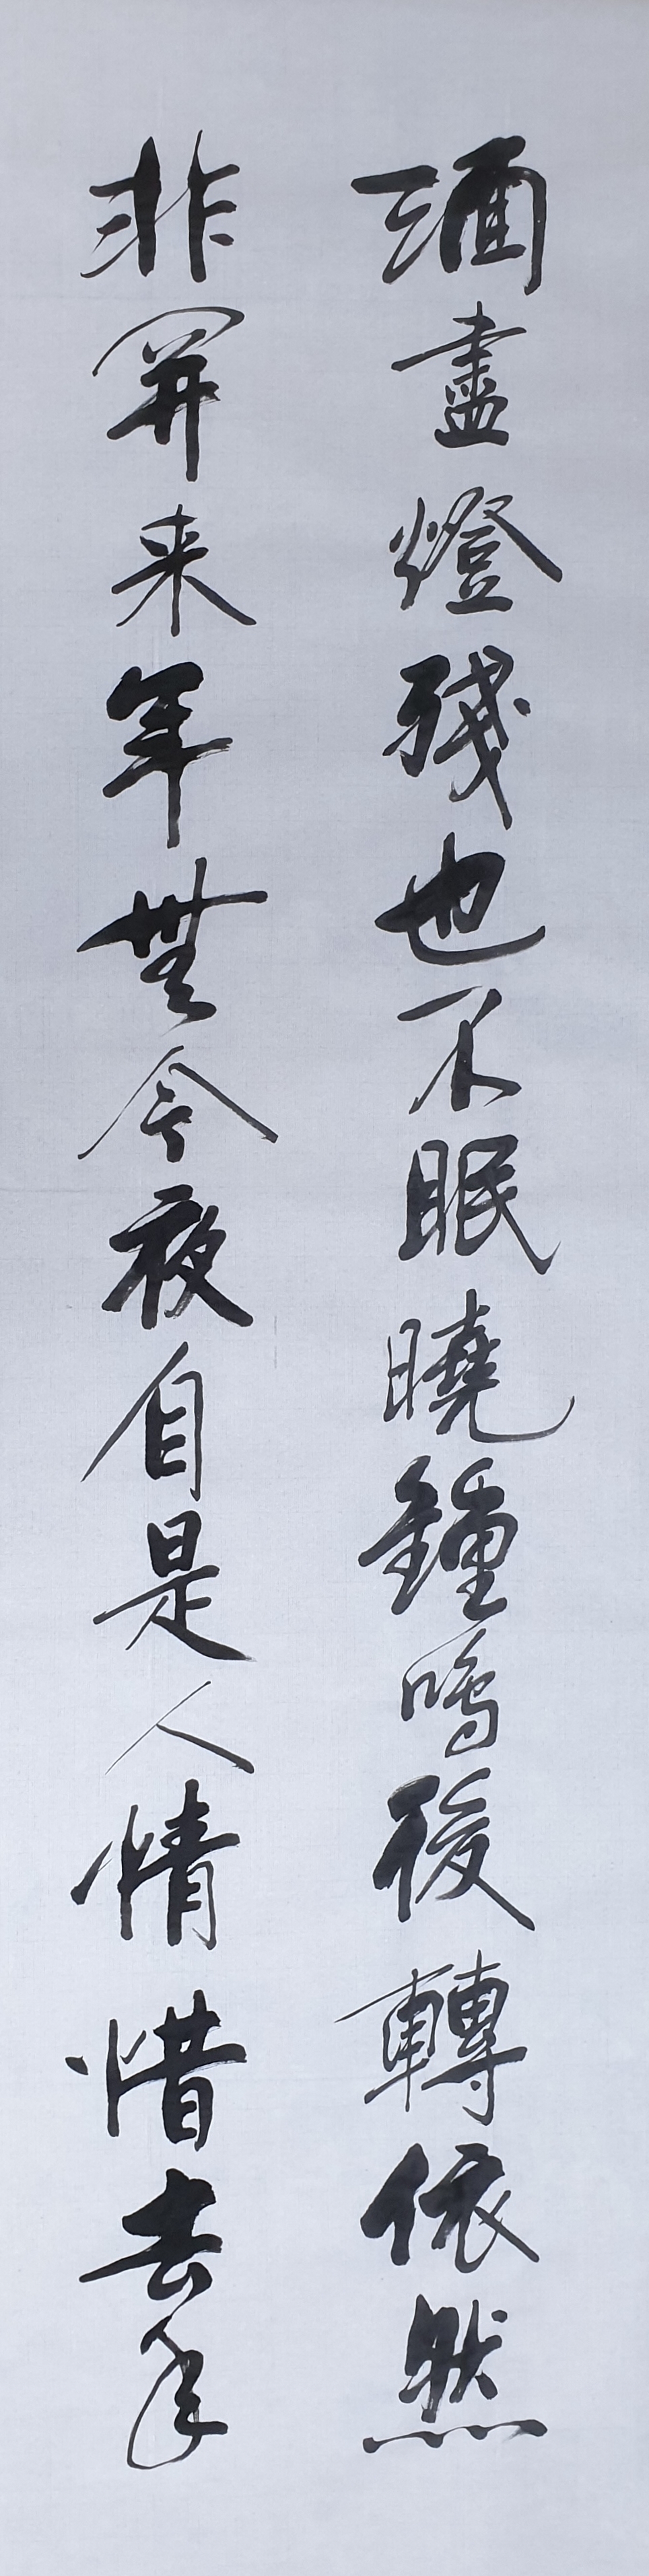 酒盡燈殘也不眠曉鍾鳴後轉依然
非関来年無今夜自是人情惜去年